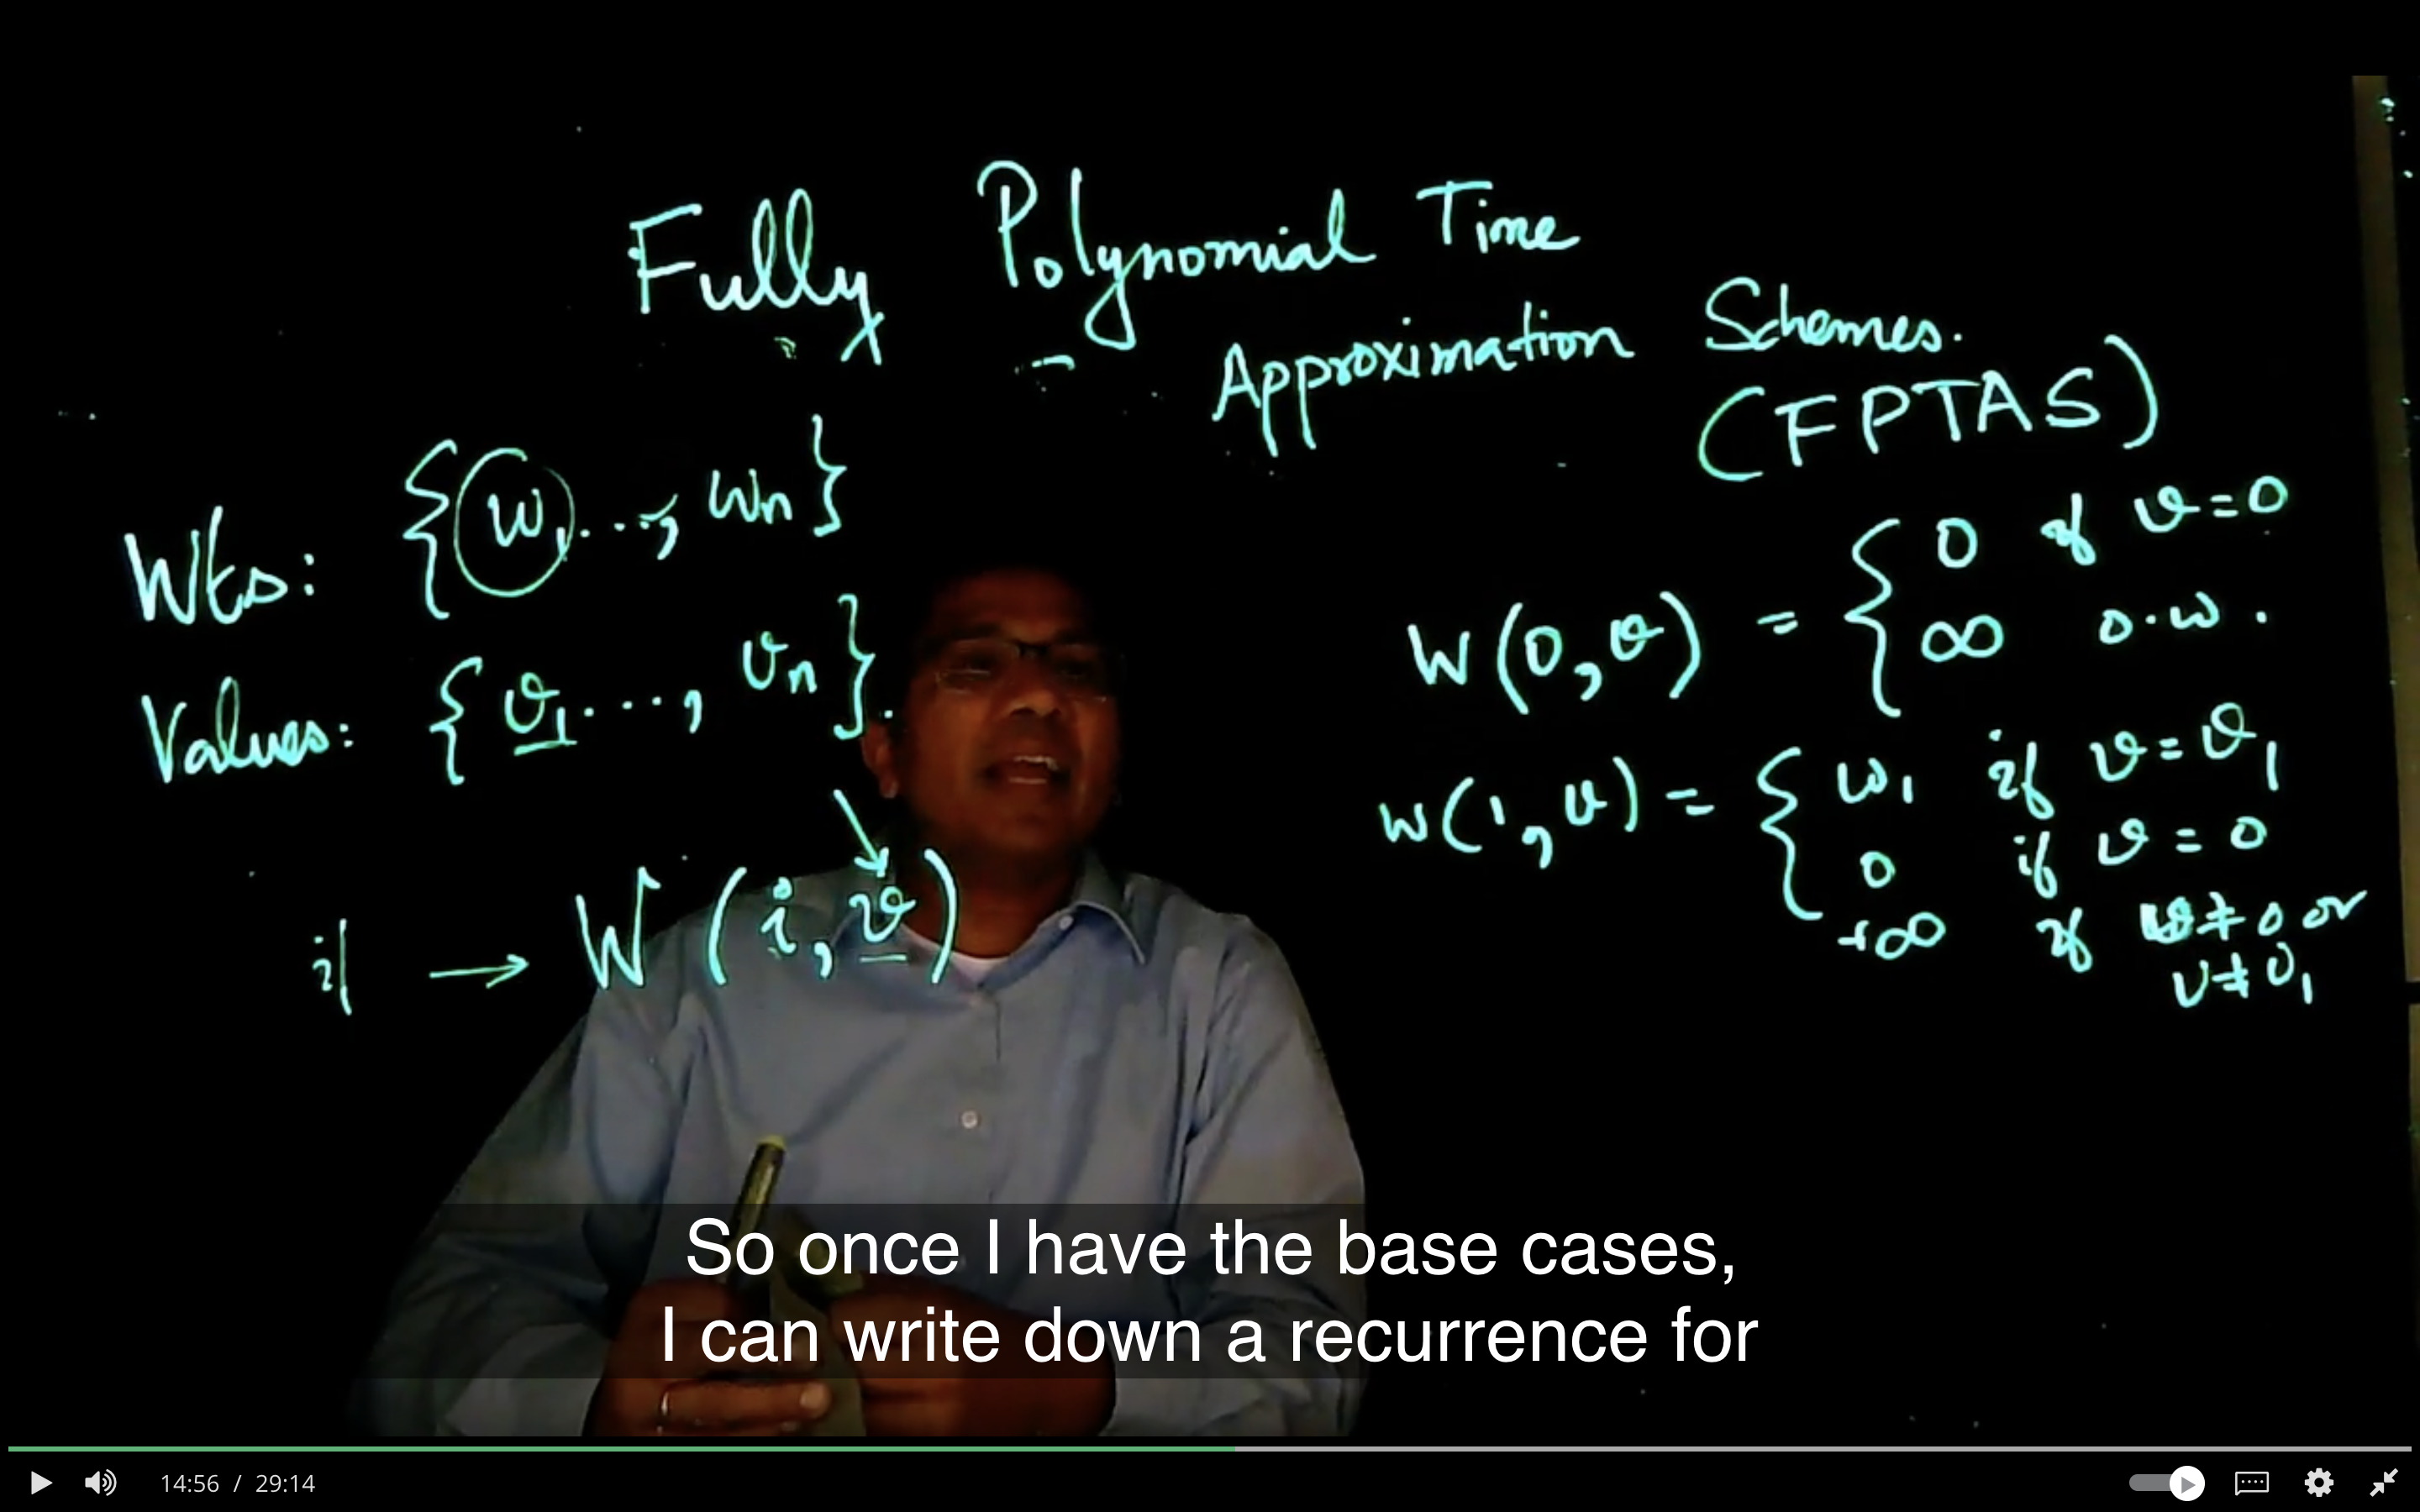 Fully Polynomial Time
Approximation Schemes.
(FPTAS)
Wts: {w1..., wn}
Values: {v1..., vn}.
i → W(i, v)
W(0, v) = { 0 if v=0
∞ o.w.
W(1, v) = { w1 if v=v1
0 if v=0
+∞ if v≠0 or
v≠v1
So once I have the base cases,
I can write down a recurrence for
14:56 / 29:14